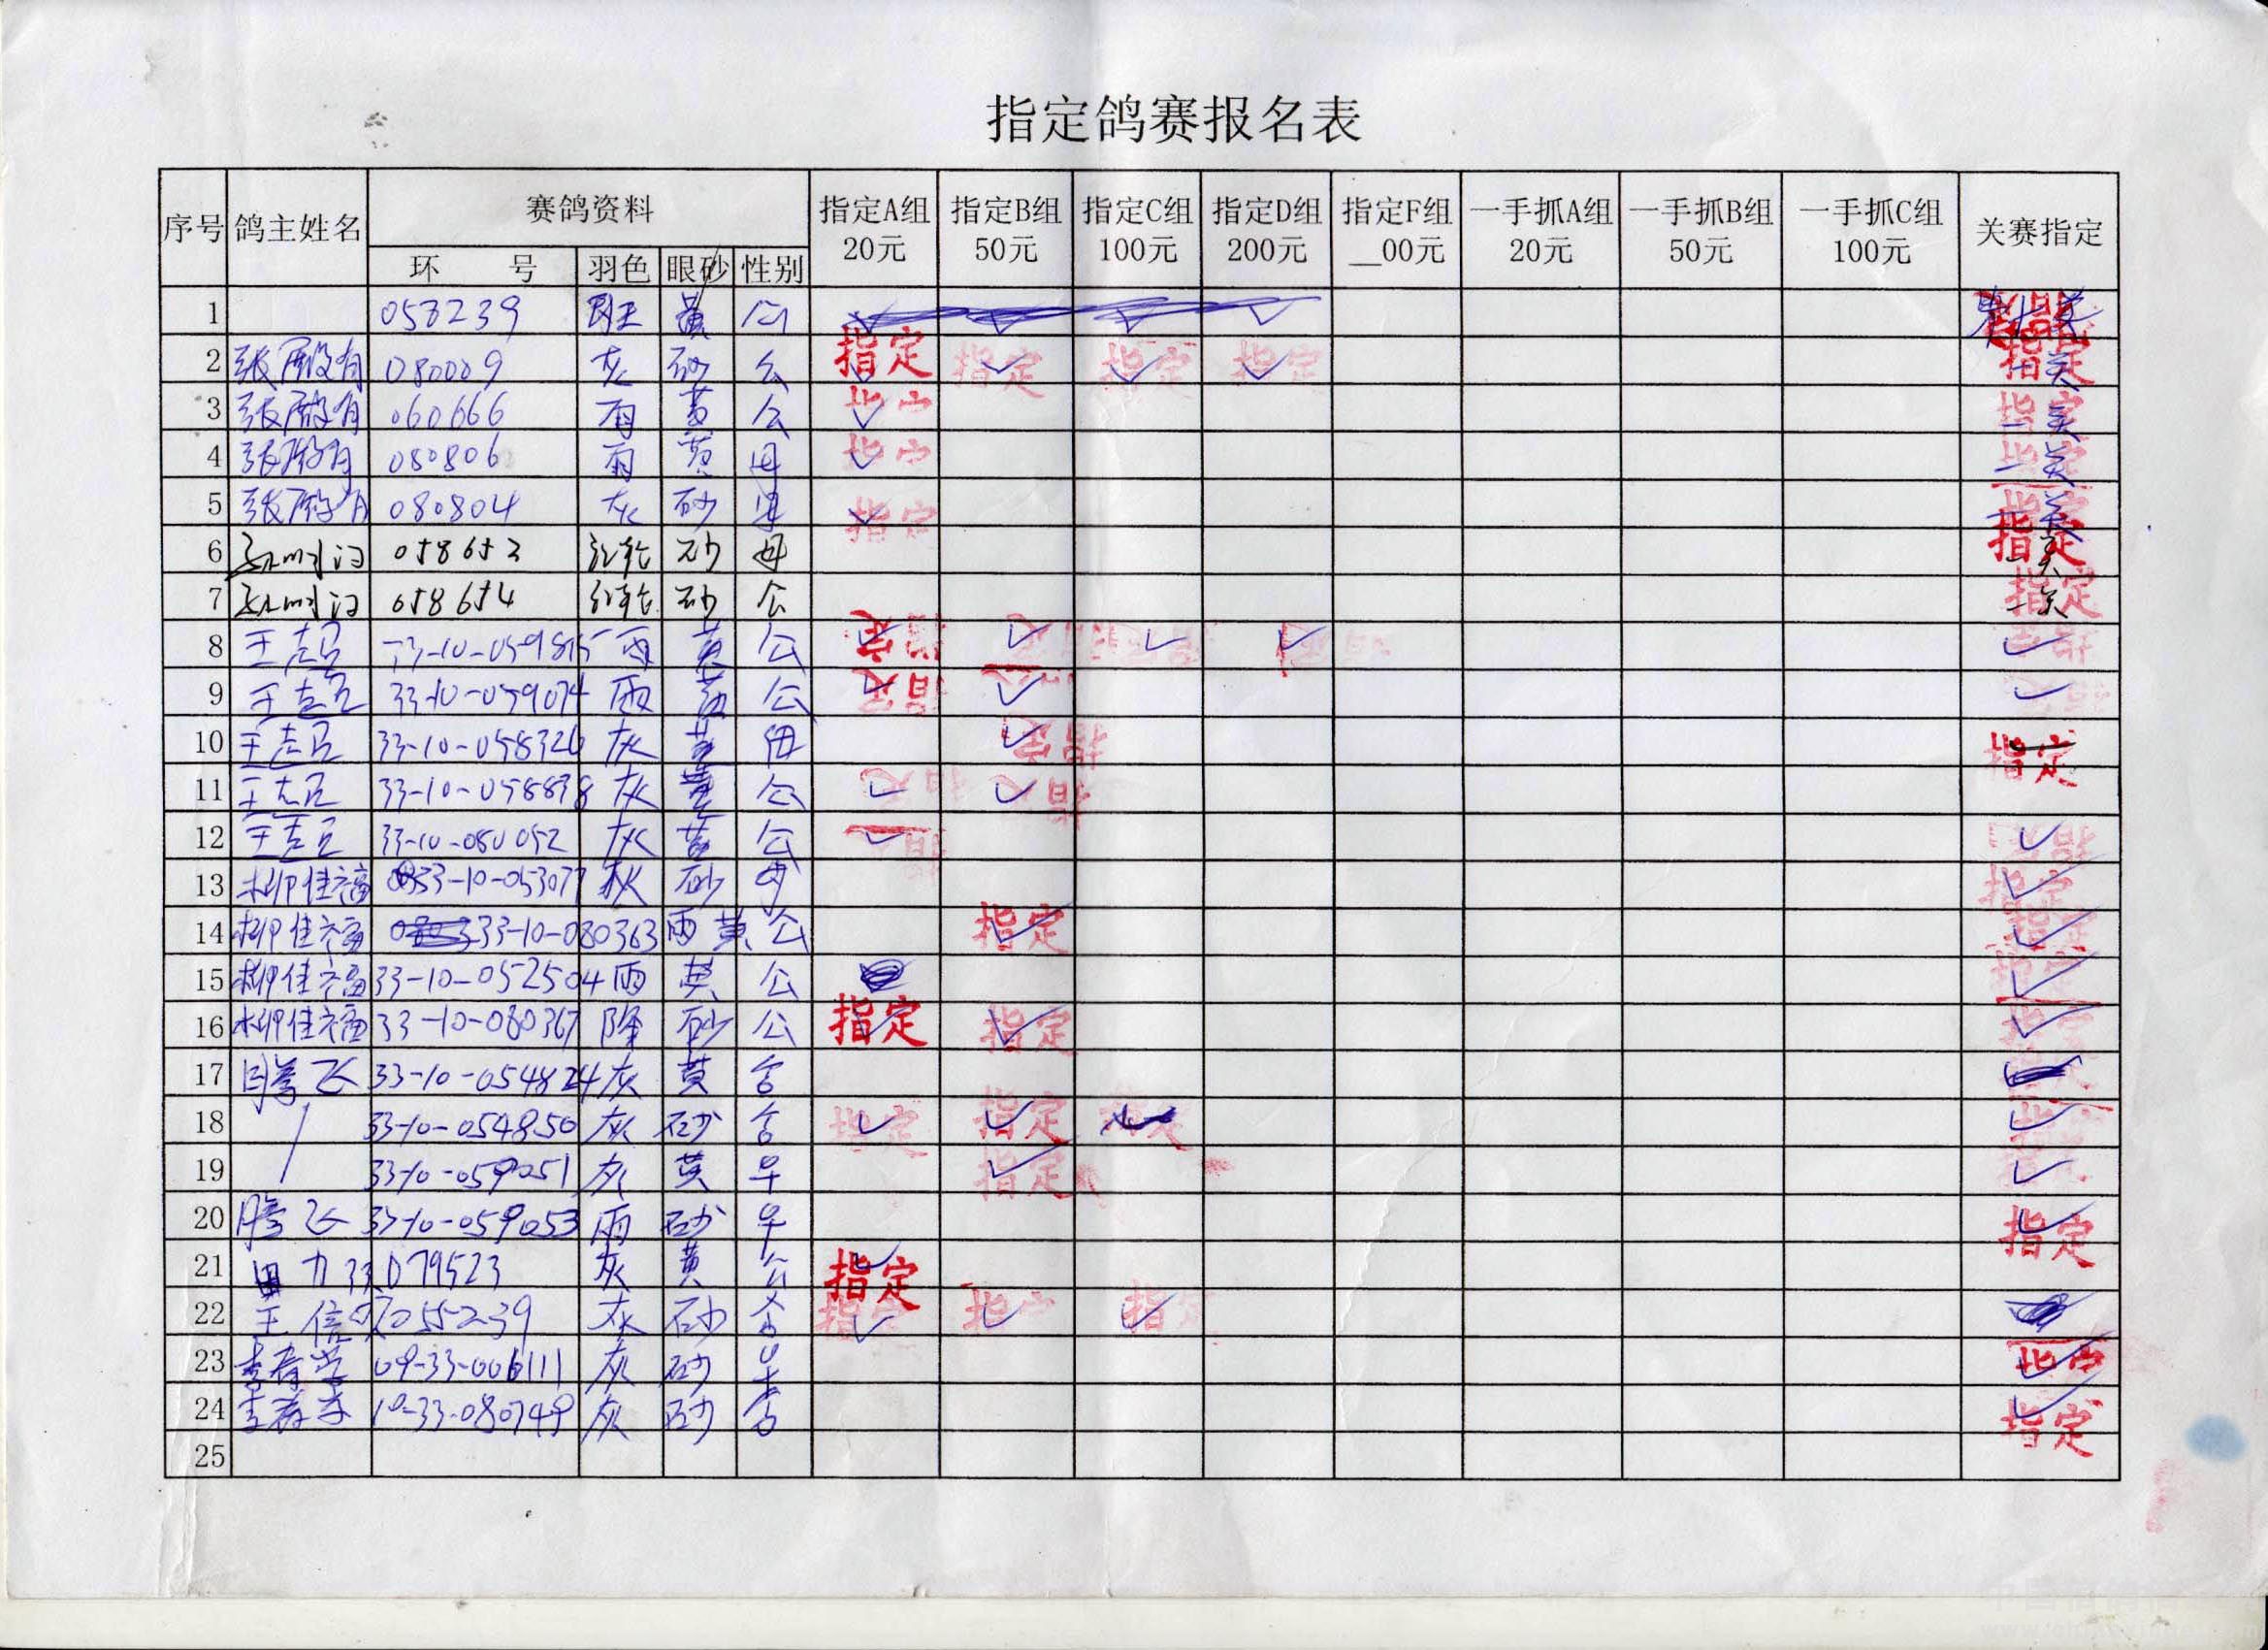 指定鸽赛报名表
序号 鸽主姓名 赛鸽资料 指定A组 指定B组 指定C组 指定D组 指定F组 一手抓A组 一手抓B组 一手抓C组 关赛指定
20元 50元 100元 200元 __00元 20元 50元 100元
环 号 羽色 眼砂 性别
1 053239 黄 公
2 080009 灰 砂 公 指定 指定 指定 指定 指定
3 060666 雨 黄 公 指定 一关
4 080806 雨 黄 母 指定 一关
5 080804 灰 砂 母 指定 指定
6 058652 红轮 砂 母 指定
7 058654 红轮 砂 公 指定
8 王志民 雨 黄 公 指定
9 王志民 33-10-059074 雨 黄 公 指定
10 王志民 33-10-058326 灰 黄 母 指定 指定
11 王志民 33-10-058838 灰 黄 公
12 王志民 33-10-080052 灰 黄 公
13 柳佳福 33-10-053077 灰 砂 母 指定
14 柳佳福 33-10-080363 雨 黄 公 指定 指定
15 柳佳福 33-10-052504 雨 黄 公 指定
16 柳佳福 33-10-080367 降 砂 公 指定 指定 指定
17 腾飞 33-10-054824 灰 黄 合
18 33-10-054850 灰 砂 合 指定 指定 指定
19 33-10-059051 灰 黄 早 指定
20 腾飞 33-10-059053 雨 砂 早 指定
21 田力 33 079523 灰 黄 公 指定
22 王信 055239 灰 砂 合 指定 指定 指定
23 09-33-006111 灰 砂 早 指定
24 10-33-080749 灰 砂 合 指定
25